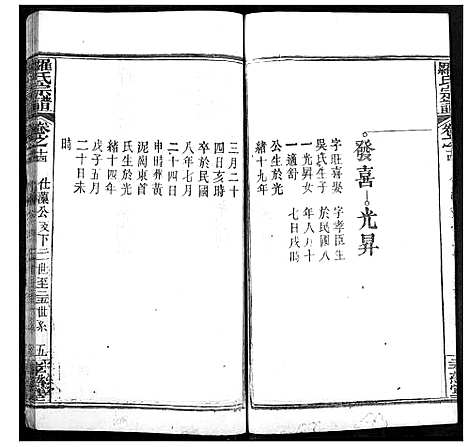 羅氏宗譜
卷之十四
發喜 光昇
字旺喜娶 字孝臣生
吳氏生子 於民國八
一光昇女 年八月十
一適舒 七日戌時
公生於光
緒十九年
三月二十
四日亥時
卒於民國
八年七月
二十四日
申時葬黃
泥崗東首
氏生於光
緒十四年
戊子五月
二十日未
時
羅氏宗譜
卷之十四
仕藻公
世系
五